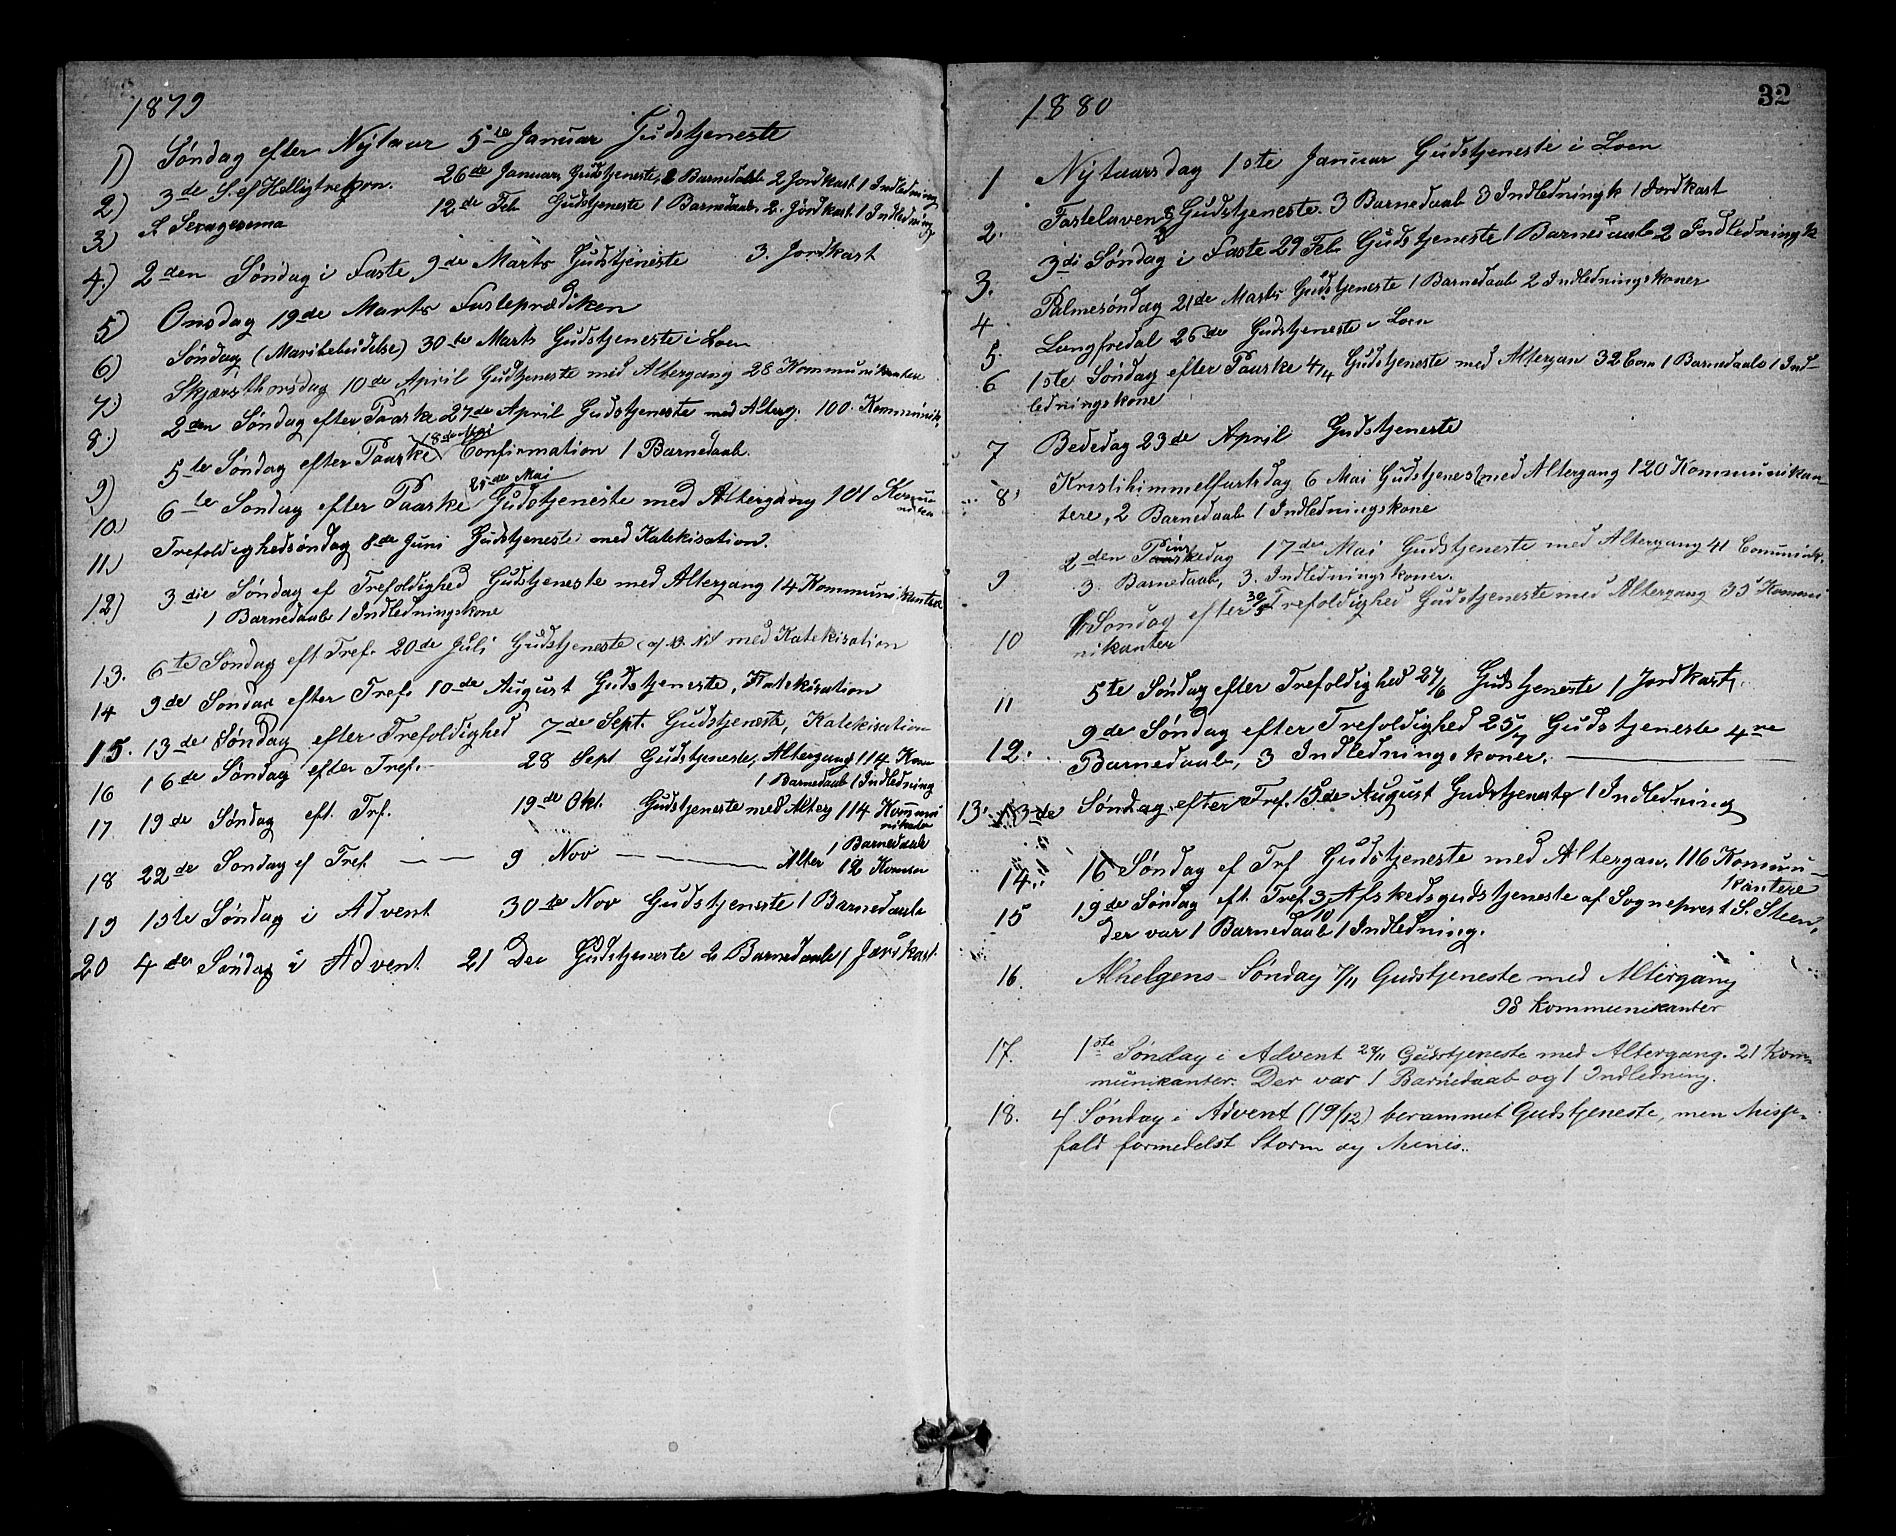 1879
1) Søndag efter Nytaar 5te Januar Gudstjeneste
2) 3de S. ef Helligtrekon. 26de Januar, Gudstjeneste, 2 Barnedaab 2 Jordkast 1 Indledning
3) S Sexagesima 12de Feb Gudstjeneste 1 Barnedaab, 2. Jordkast. 1 Indledning
4.) 2den Søndag i Faste 9de Marts Gudstjeneste 3. Jordkast
5) Onsdag 19de Marts Fasteprædiken
6) Søndag (Maribebudelse) 30te Marts Gudstjeneste i Loen
7.) Skjærsthorsdag 10de April Gudtjeneste med Altergang 28 Kommunikanter
8.) 2den Søndag efter Paaske 27de April Gudstjeneste med Alterg. 100. Kommunik.
9) 5te Søndag efter Paaske 18de Mai Confirmation 1 Barnedaab.
10) 6te Søndag efter Paaske 25de Mai Gudstjeneste med Altergang 101 Kommunikan
11.) Trefoldighedsøndag 8de Juni Gudstjeneste med Katekisation.
12) 3die Søndag ef Trefoldighed Gudstjeneste med Altergang 14 Kommunikanter
1 Barnedaab 1 Indledningskone
13. 6te Søndag eft Tref. 20de Juli Gudstjeneste med Katekisation
14 9de Søndag efter Tref. 10de August Gudstjeneste, Katekisation
15. 13de Søndag efter Trefoldighed 7de Sept. Gudstjeneste, Katekisation
16 16de Søndag efter Tref. 28 Sept Gudstjeneste, Altergang 114 Kom
1 Barnedaab 1 Indledning
17 19de Søndag eft. Trf. 19de Okt. Gudstjeneste med Alterg 114 Kommunikanter
1 Barnedaab
18 22de Søndag ef Tref. — — 9 Nov ——— Alter 12 Komm
19 1ste Søndag i Advent 30te Nov Gudstjeneste 1 Barnedaab
20 4de Søndag i Advent 21 Dec Gudstjeneste 2 Barnedaab 1 Jordkast
1880
32
1 Nytaarsdag 1ste Januar Gudstjeneste i Loen
2. Fastelavens 8/2 Gudstjeneste. 3 Barnedaab 3 Indledningk 1 Jordkast
3. 3di Søndag i Faste 29 Feb Gudstjeneste 1 Barnedaab 2 Indledningk
4 Palmesøndag 21de Marts Gudstjeneste 1 Barnedaab 2 Indledningskoner
5. Langfredal 26de Gudstjeneste i Loen
6 1ste Søndag efter Paaske 4/4 Gudstjeneste med Altergan 32 Com 1 Barnedaab 1 Ind-
ledningskone
7 Bededag 23de April Gudstjeneste
8. Kristihimmelfartsdag 6 Mai Gudstjenest med Altergang 120 Kommunikan-
tere, 2 Barnedaab 1 Indledningskone
9 2den Pinsedag 17de Mai Gudstjeneste med Altergang 41 Comunik.
3. Barnedaab, 3. Indledningskoner.
10 Søndag efter 30/5 Trefoldighed Gudstjeneste med Altergang 35 Kommu
nikanter
11 5te Søndag efter Trefoldighed 27/6 Gudstjeneste 1 Jordkast.
12. 9de Søndag efter Trefoldighed 25/7 Gudstjeneste 4re
Barnedaab, 3 Indledningskoner. ———
13. 13de Søndag efter Tref. 15de August Gudstjeneste 1 Indledning
14. 16 Søndag ef Trf Gudstjeneste med Altergan, 116 Komuni-
kantere
15 19de Søndag eft. Tref 3/10 Afskedsgudstjeneste af Sogneprest S. Steen,
der var 1 Barnedaab 1 Indledning.
16. Alhelgens-Søndag 7/11 Gudstjeneste med Altergang
98 Kommunikanter
17. 1ste Søndag i Advent 28/11 Gudstjeneste med Altergang. 21 Kom-
munikanter. Der var 1 Barnedaab og 1 Indledning.
18. 4 Søndag i Advent (19/12) berammet Gudstjeneste, men Messe-
fald formedelst Storm og Menis.